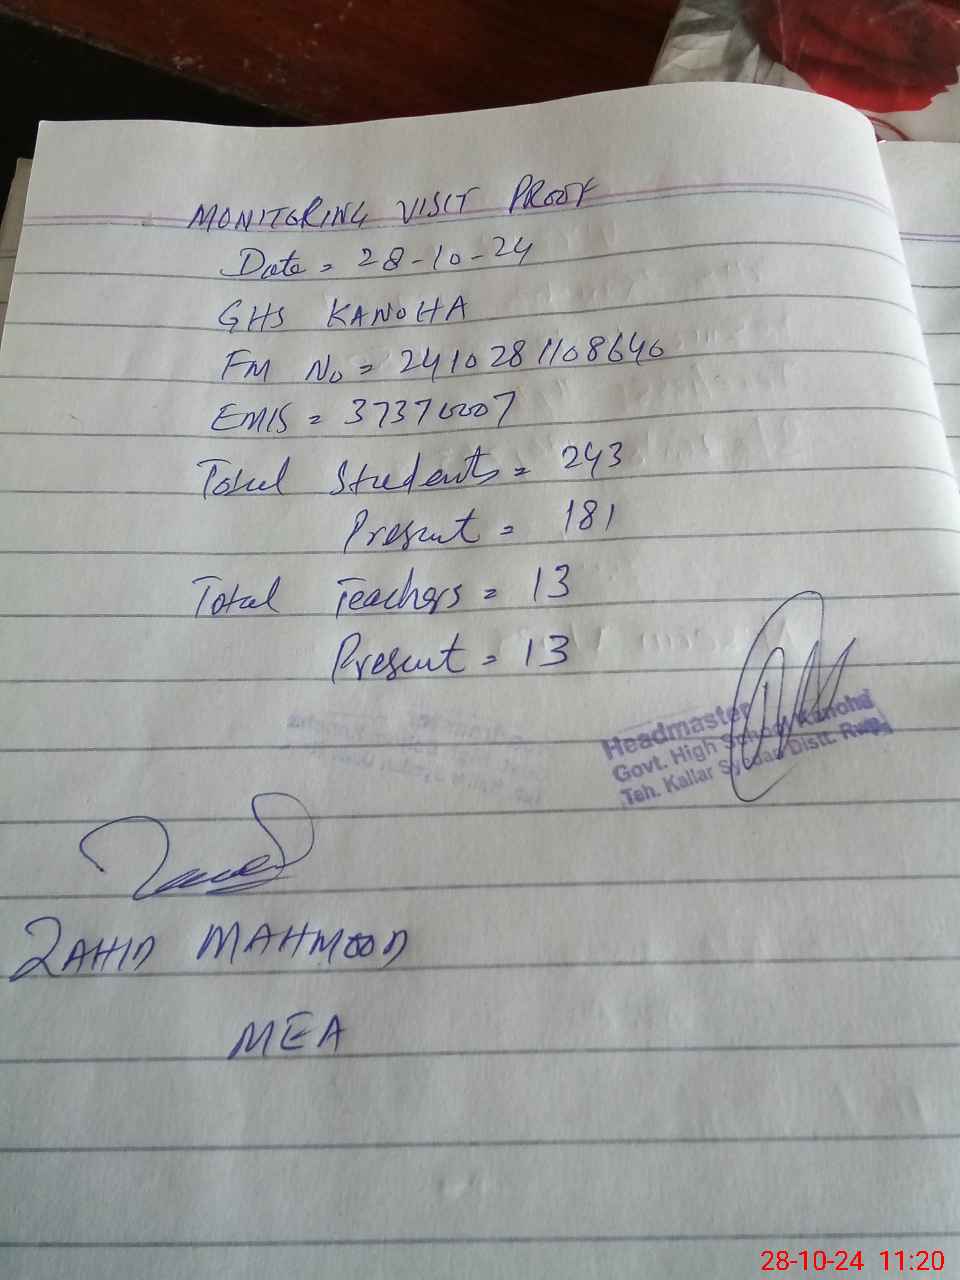 MONITORING VISIT PROOF
Date = 28-10-24
GHS KANOHA
FM No = 2410281108646
EMIS = 37370007
Total Students = 243
Present = 181
Total Teachers = 13
Present = 13
Headmaster
Govt. High School Kanoha
Teh. Kallar Syedan Distt. Rwp.
ZAHID MAHMOOD
MEA
28-10-24 11:20